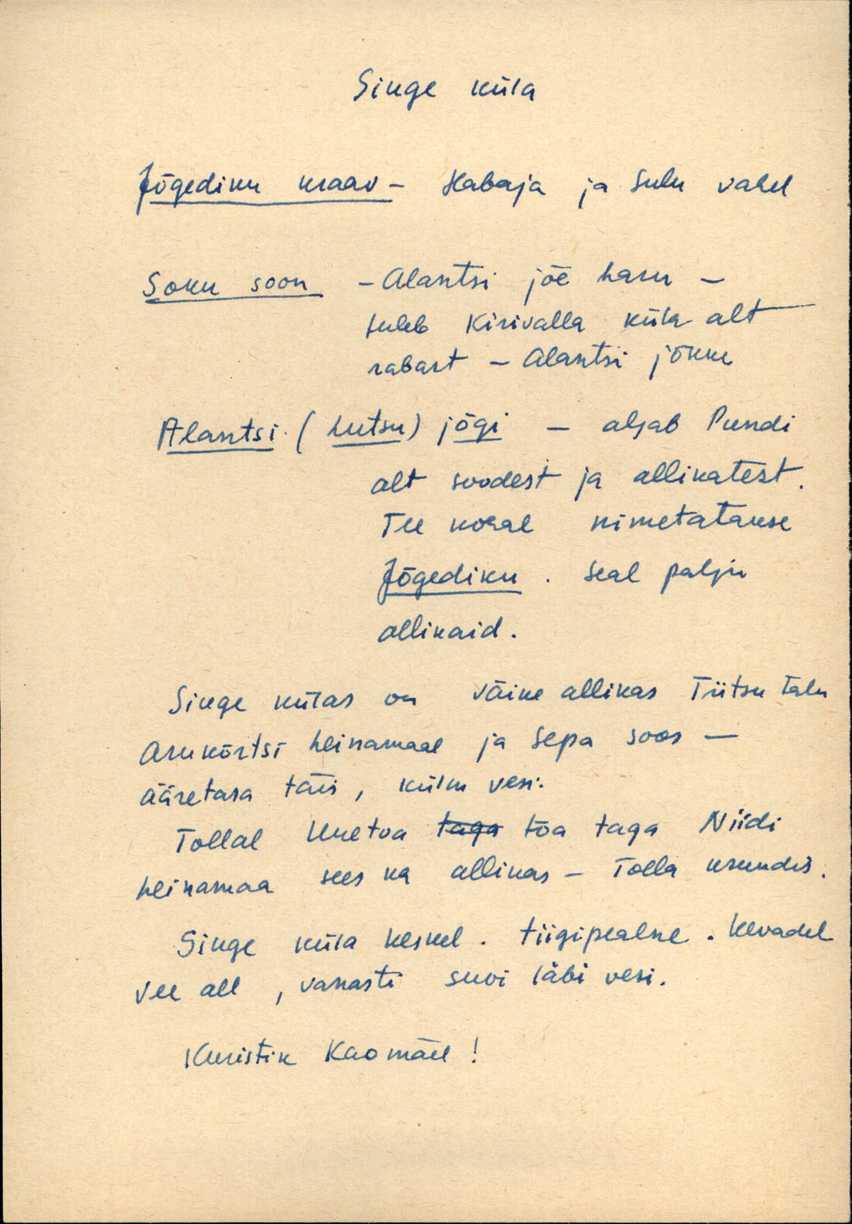 Singe küla
Jõgediku kraav - Habaja ja Sulu vahel
Soku soon - Alantsi jõe haru -
tuleb Kirivalla küla alt
rabast - Alantsi jõkke
Alantsi (Lutsu) jõgi - algab Pundi
alt soodest ja allikatest.
Tee kohal nimetatakse
Jõgediku. Seal palju
allikaid.
Singe külas on väike allikas Tiitsu talu
Arukõrtsi heinamaal ja Sepa soos -
ääretasa täis, külm vesi.
Tollal taga toa taga Niidi
heinamaa sees ka allikas - Tolla
Singe küla keskel. tiigipealne. Kevadel
vee all, vanasti suvi läbi vesi.
Kuristik Kaomäel!